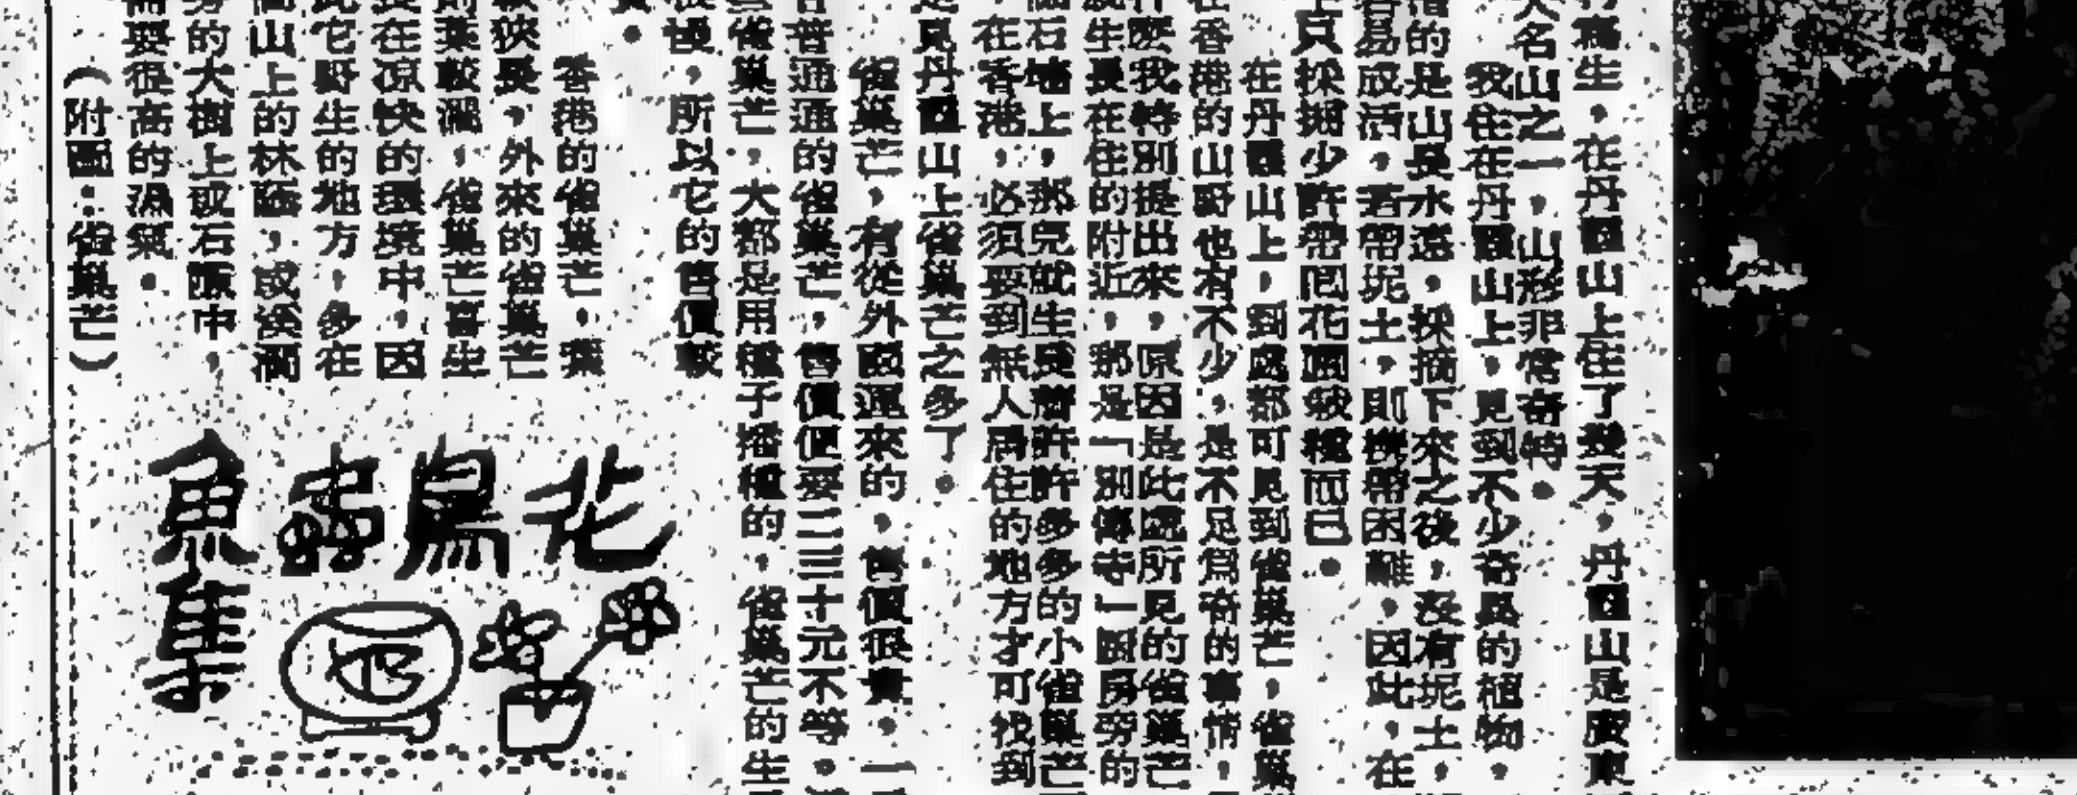 為生，在丹霞山上住了幾天，丹霞山是廣東
大名山之一，山形非常奇特。
我住在丹霞山上，見到不少奇異的植物，
惜的是山長水遠，採摘下來之後，沒有坭土，
容易成活，若帶坭土，則携帶困難。因此，在
上只採摘少許帶囘花園栽種而已。
在丹霞山上，到處都可見到雀巢芒，雀巢
在香港的山野也有不少，是不足為奇的事情，
什麼我特別提出來，原因是此處所見的雀巢芒
就生長在住的附近，那是「別傳寺」廚房旁的
石墻上，那兒就生長着許許多多的小雀巢芒
在香港，必須要到無人居住的地方才可找到
見丹霞山上雀巢芒之多了。
雀巢芒，有從外國運來的，售價很貴。一
普通通的雀巢芒，售價便要二三十元不等。
雀巢芒，大都是用種子播種的，雀巢芒的生
很慢，所以它的售價較
貴。
香港的雀巢芒，葉
較狹長，外來的雀巢芒
則葉較濶，雀巢芒喜生
長在凉快的環境中，因
此它野生的地方，多在
高山上的林蔭，或溪澗
旁的大樹上或石隙中，
需要很高的濕氣。
（附圖：雀巢芒）
花鳥蟲魚集